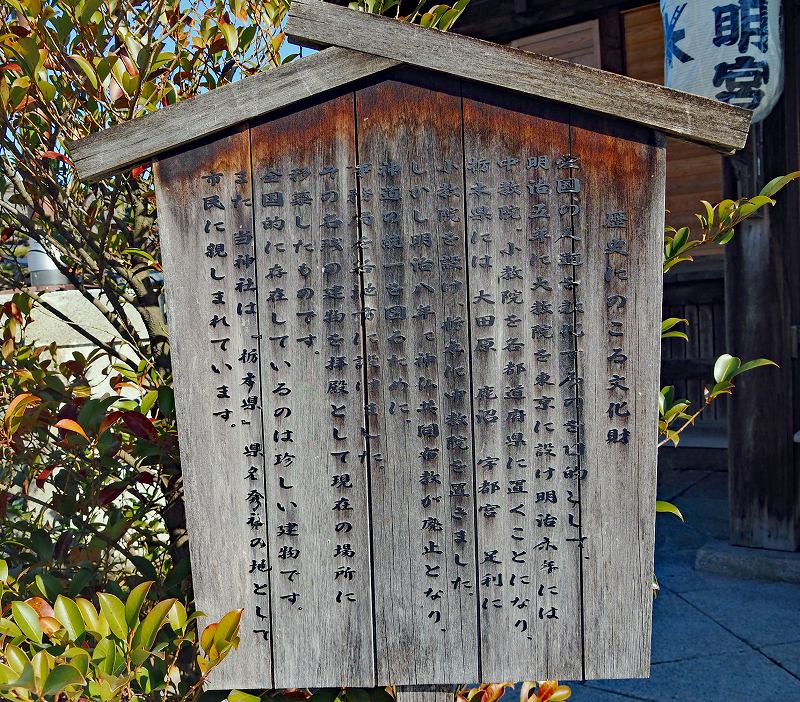 歴史にのこる文化財
全国の人達を教化するのを目的として、
明治五年に大教院を東京に設け明治六年には
中教院、小教院を各都道府県に置くことになり、
栃木県には 大田原 鹿沼 宇都宮 足利に
小教院を設け、栃木に中教院を置きました。
しかし明治八年で神仏共同布教が廃止となり、
神道の統一を図るために、
事務局を各地方に設けました。
その名残の建物を拝殿として現在の場所に
移築したものです。
全国的に存在しているのは珍しい建物です。
また 当神社は、『栃木県』 県名発祥の地として
市民に親しまれています。
明宮